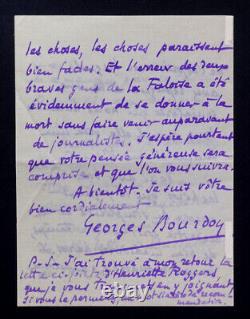 les choses, les choses paraissent
bien fades. Et l'erreur des deux
braves gens de la Faloise a été
évidemment de se donner à la
mort sans faire venir auparavant
de journaliste. J'espère pourtant
que votre pensée généreuse sera
comprise et que l'on vous suivra.
A bientôt. Je suis votre
bien cordialement
Georges Bourdon
P.S. J'ai trouvé à mon retour la
lettre ci-jointe d'Henriette Roggers,
que je vous
si vous le permettez,